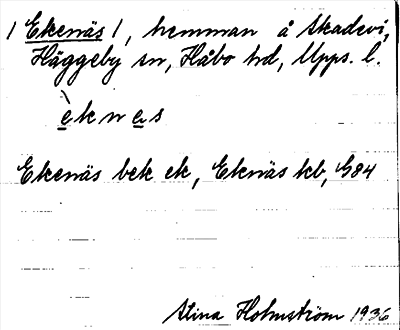 1 Ekenäs 1, hemman å Skadevi,
Häggeby sn, Håbo hd, Upps. l.
èknas
Ekenäs bek ek, Eknäs kb, G84
Stina Holmström 1936